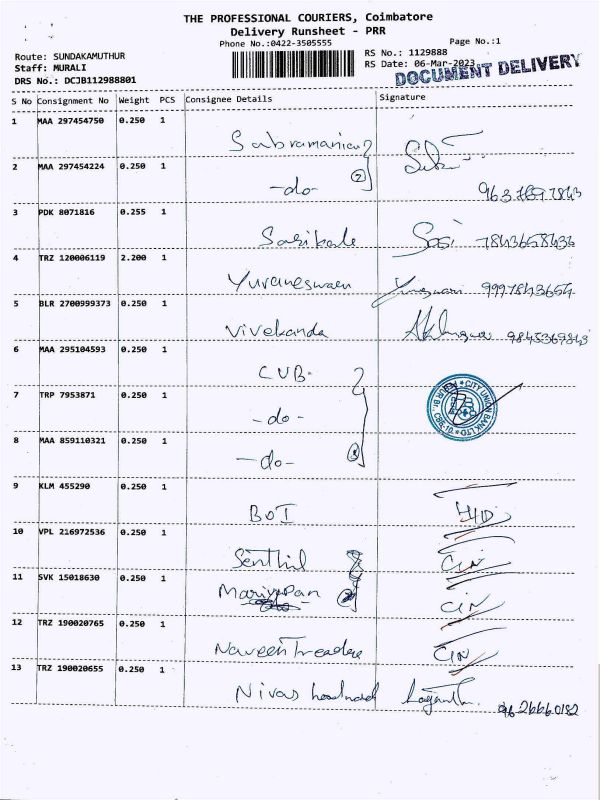 THE PROFESSIONAL COURIERS, Coimbatore
Delivery Runsheet - PRR
Phone No.:0422-3505555
Page No.:1
Route: SUNDAKAMUTHUR
RS No.: 1129888
Staff: MURALI
RS Date: 06-Mar-2023
DRS No.: DCJB112988801
DOCUMENT DELIVERY
S No Consignment No Weight PCS Consignee Details Signature
1 MAA 297454750 0.250 1
Subramanian
2 MAA 297454224 0.250 1
-do- 2
3 PDK 8071816 0.255 1
Sasikala Sasi 7843658436
4 TRZ 120006119 2.200 1
Yuvaneswaen 9997843654
5 BLR 2700999373 0.250 1
Vivekanda 9845369843
6 MAA 295104593 0.250 1
CUB
7 TRP 7953871 0.250 1
-do-
CITY UNION BANK LTD
8 MAA 859110321 0.250 1
-do-
9 KLM 455290 0.250 1
BOI
10 VPL 216972536 0.250 1
Senthil CIN
11 SVK 15018630 0.250 1
Mariyapan CIN
12 TRZ 190020765 0.250 1
Naveen Treaders CIN
13 TRZ 190020655 0.250 1
Nivas